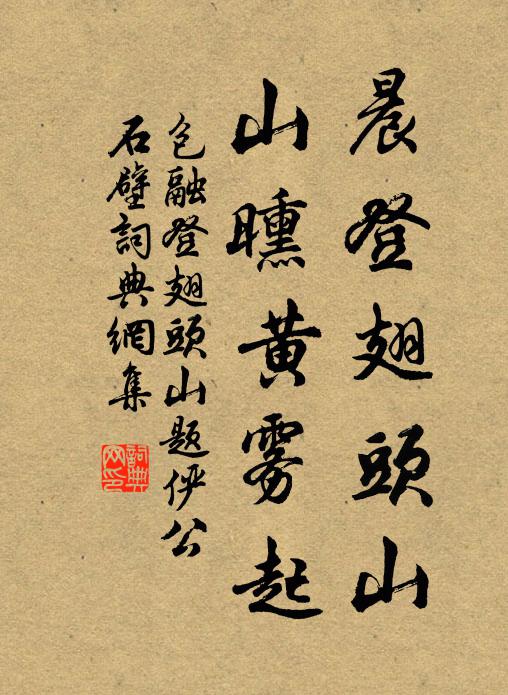 晨登翅頭山
山曛黃雾起
包融登翅頭山題俨公
石壁詞典網集
詞典
网印